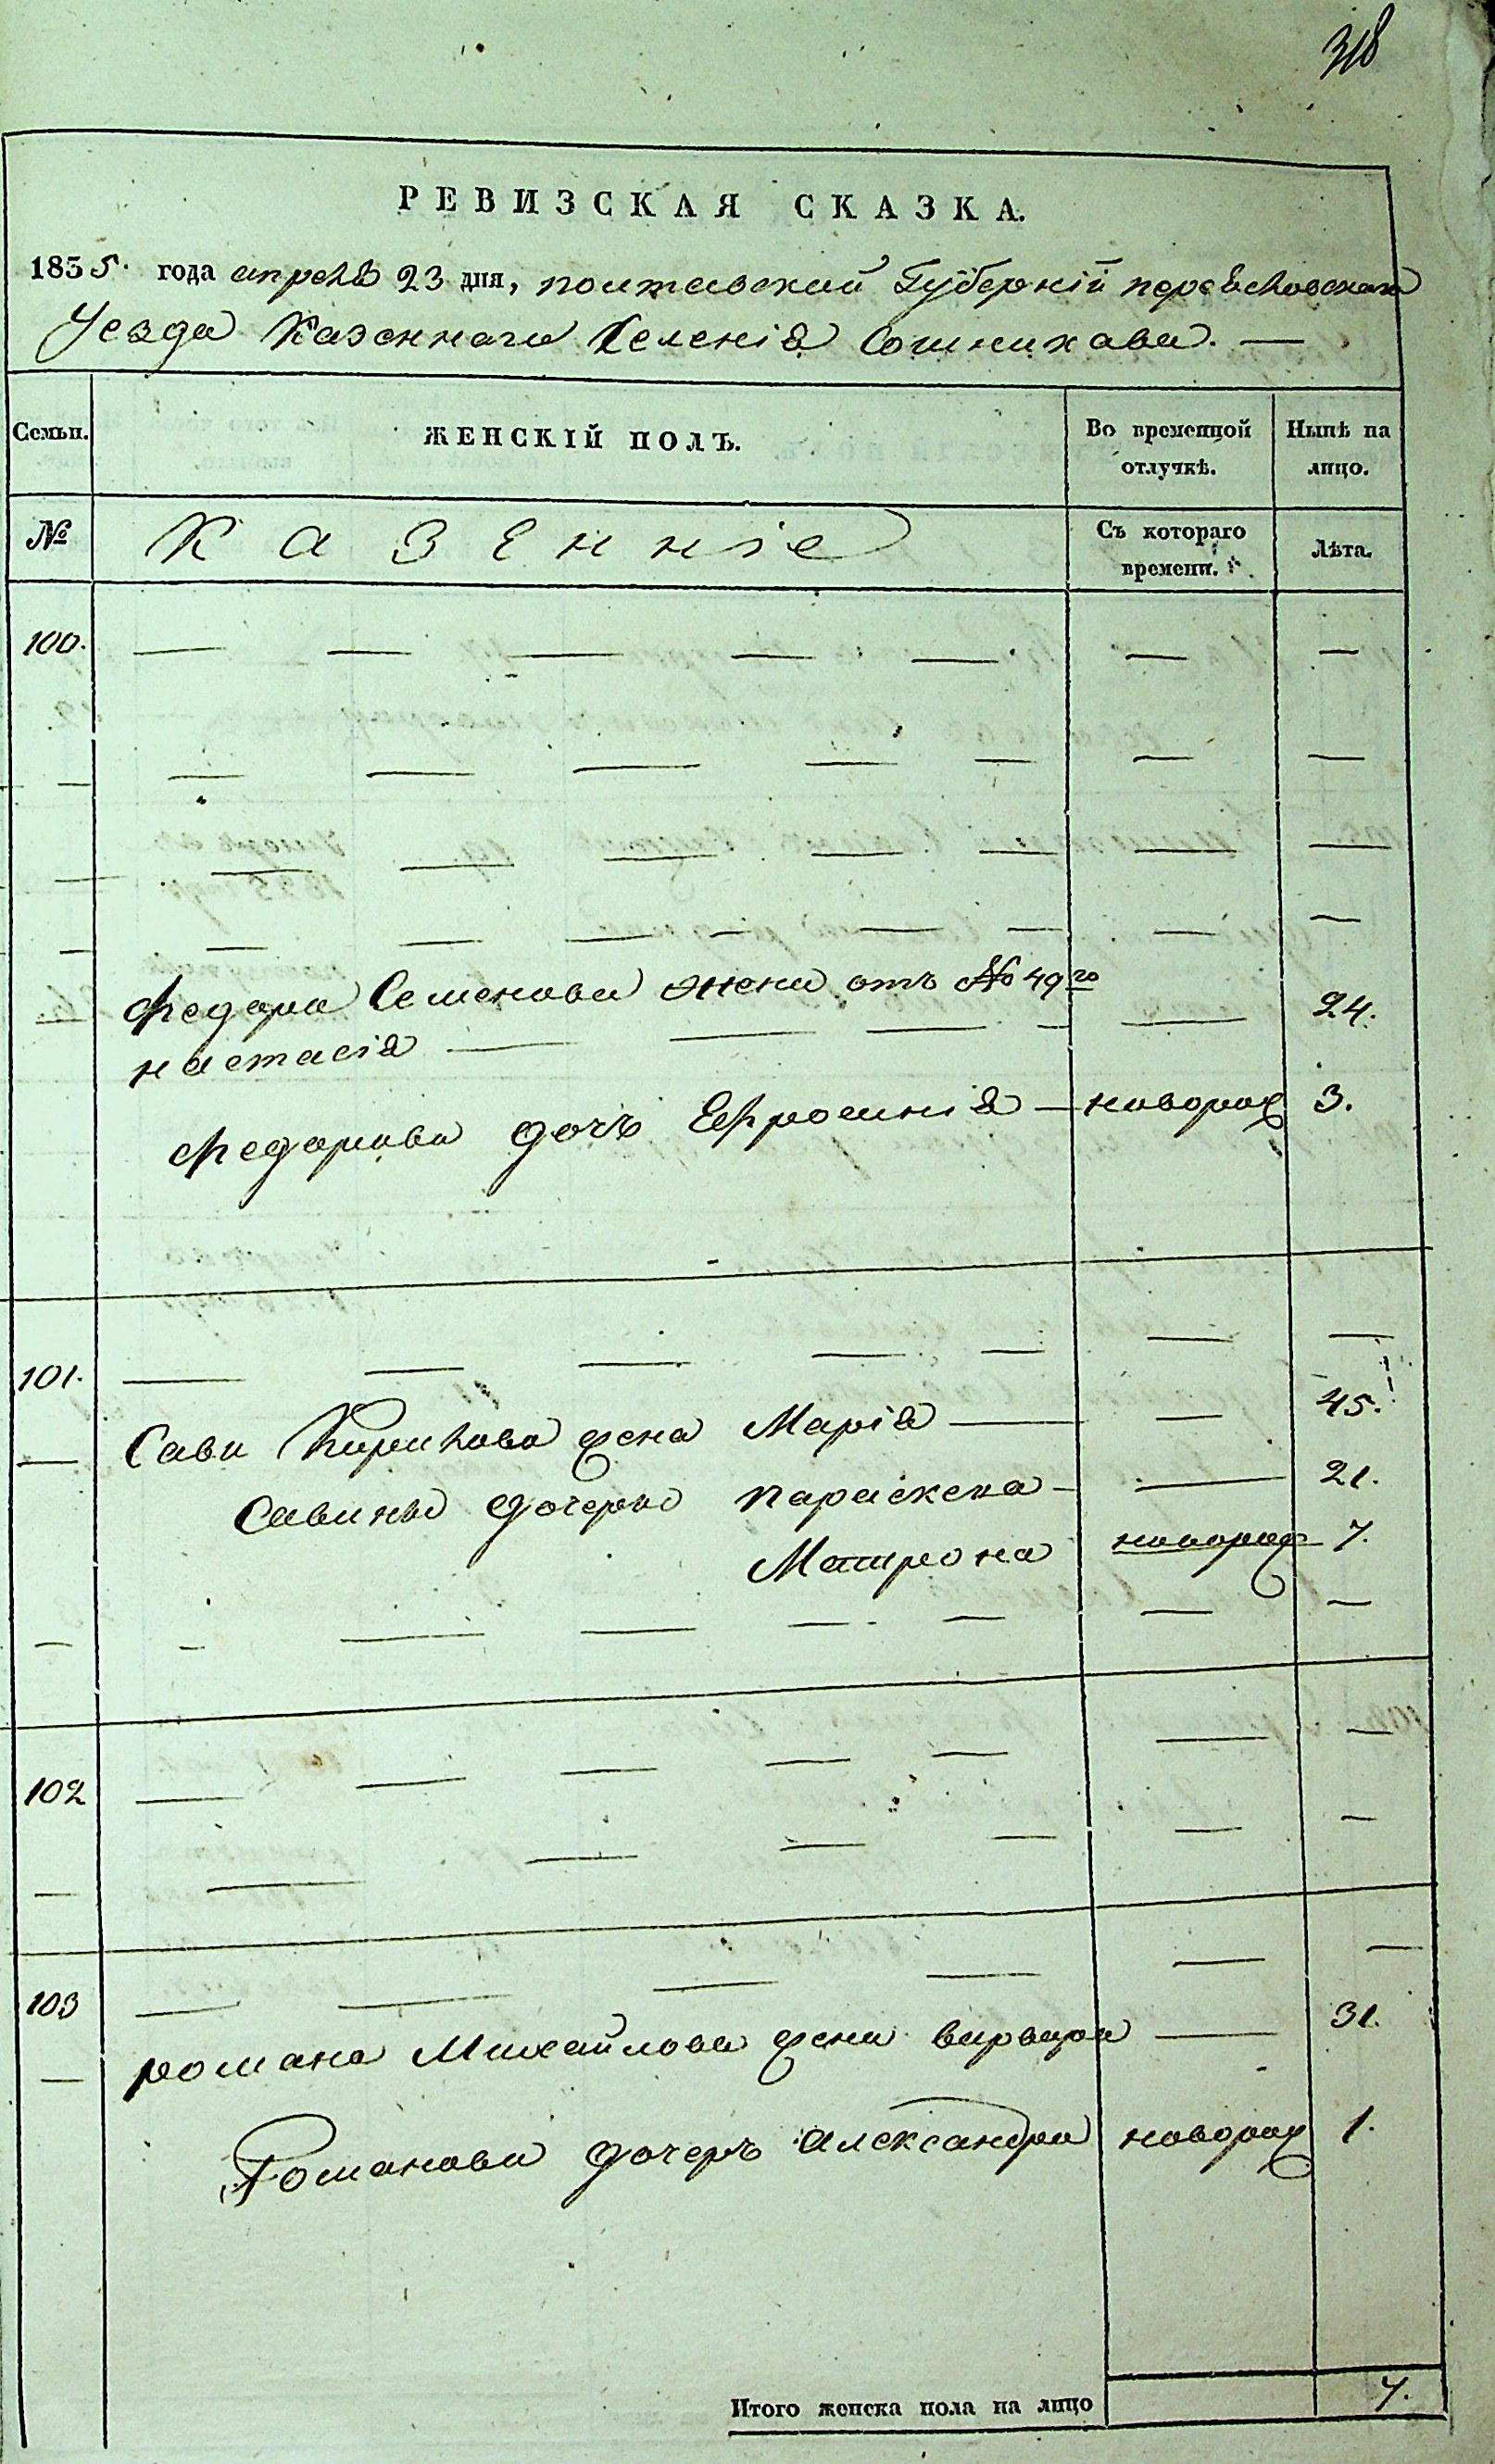 318
РЕВИЗСКАЯ СКАЗКА.
1835. года апреля 23 дня, полтавской Губерніи переяславского
Уезда Казеннаго Селенія Сошникава. —
Семьи. ЖЕНСКІЙ ПОЛЪ. Во временной отлучкѣ. Нынѣ на лицо.
№ Казенніе Съ котораго времени. Лѣта.
100. — — — — — — —
— — — — — — — —
— — — — — — — —
— — — — — — — — —
Федора Семенова жена отъ №49го
настасія — — — — — 24.
Федорова дочь Ефросинія — новорож 3.
101. — — — — — — —
— Сави Кирилова жена Марія — — 45.
Савины дочеры параскева — — 21.
Матрона новорож 7.
— — — — — — — —
102 — — — — — — —
— — — — — — —
103 — — — — — —
— романа Михайлова жена варвара — 31.
Романова дочерь александра новорож 1.
Итого женска пола на лицо 7.